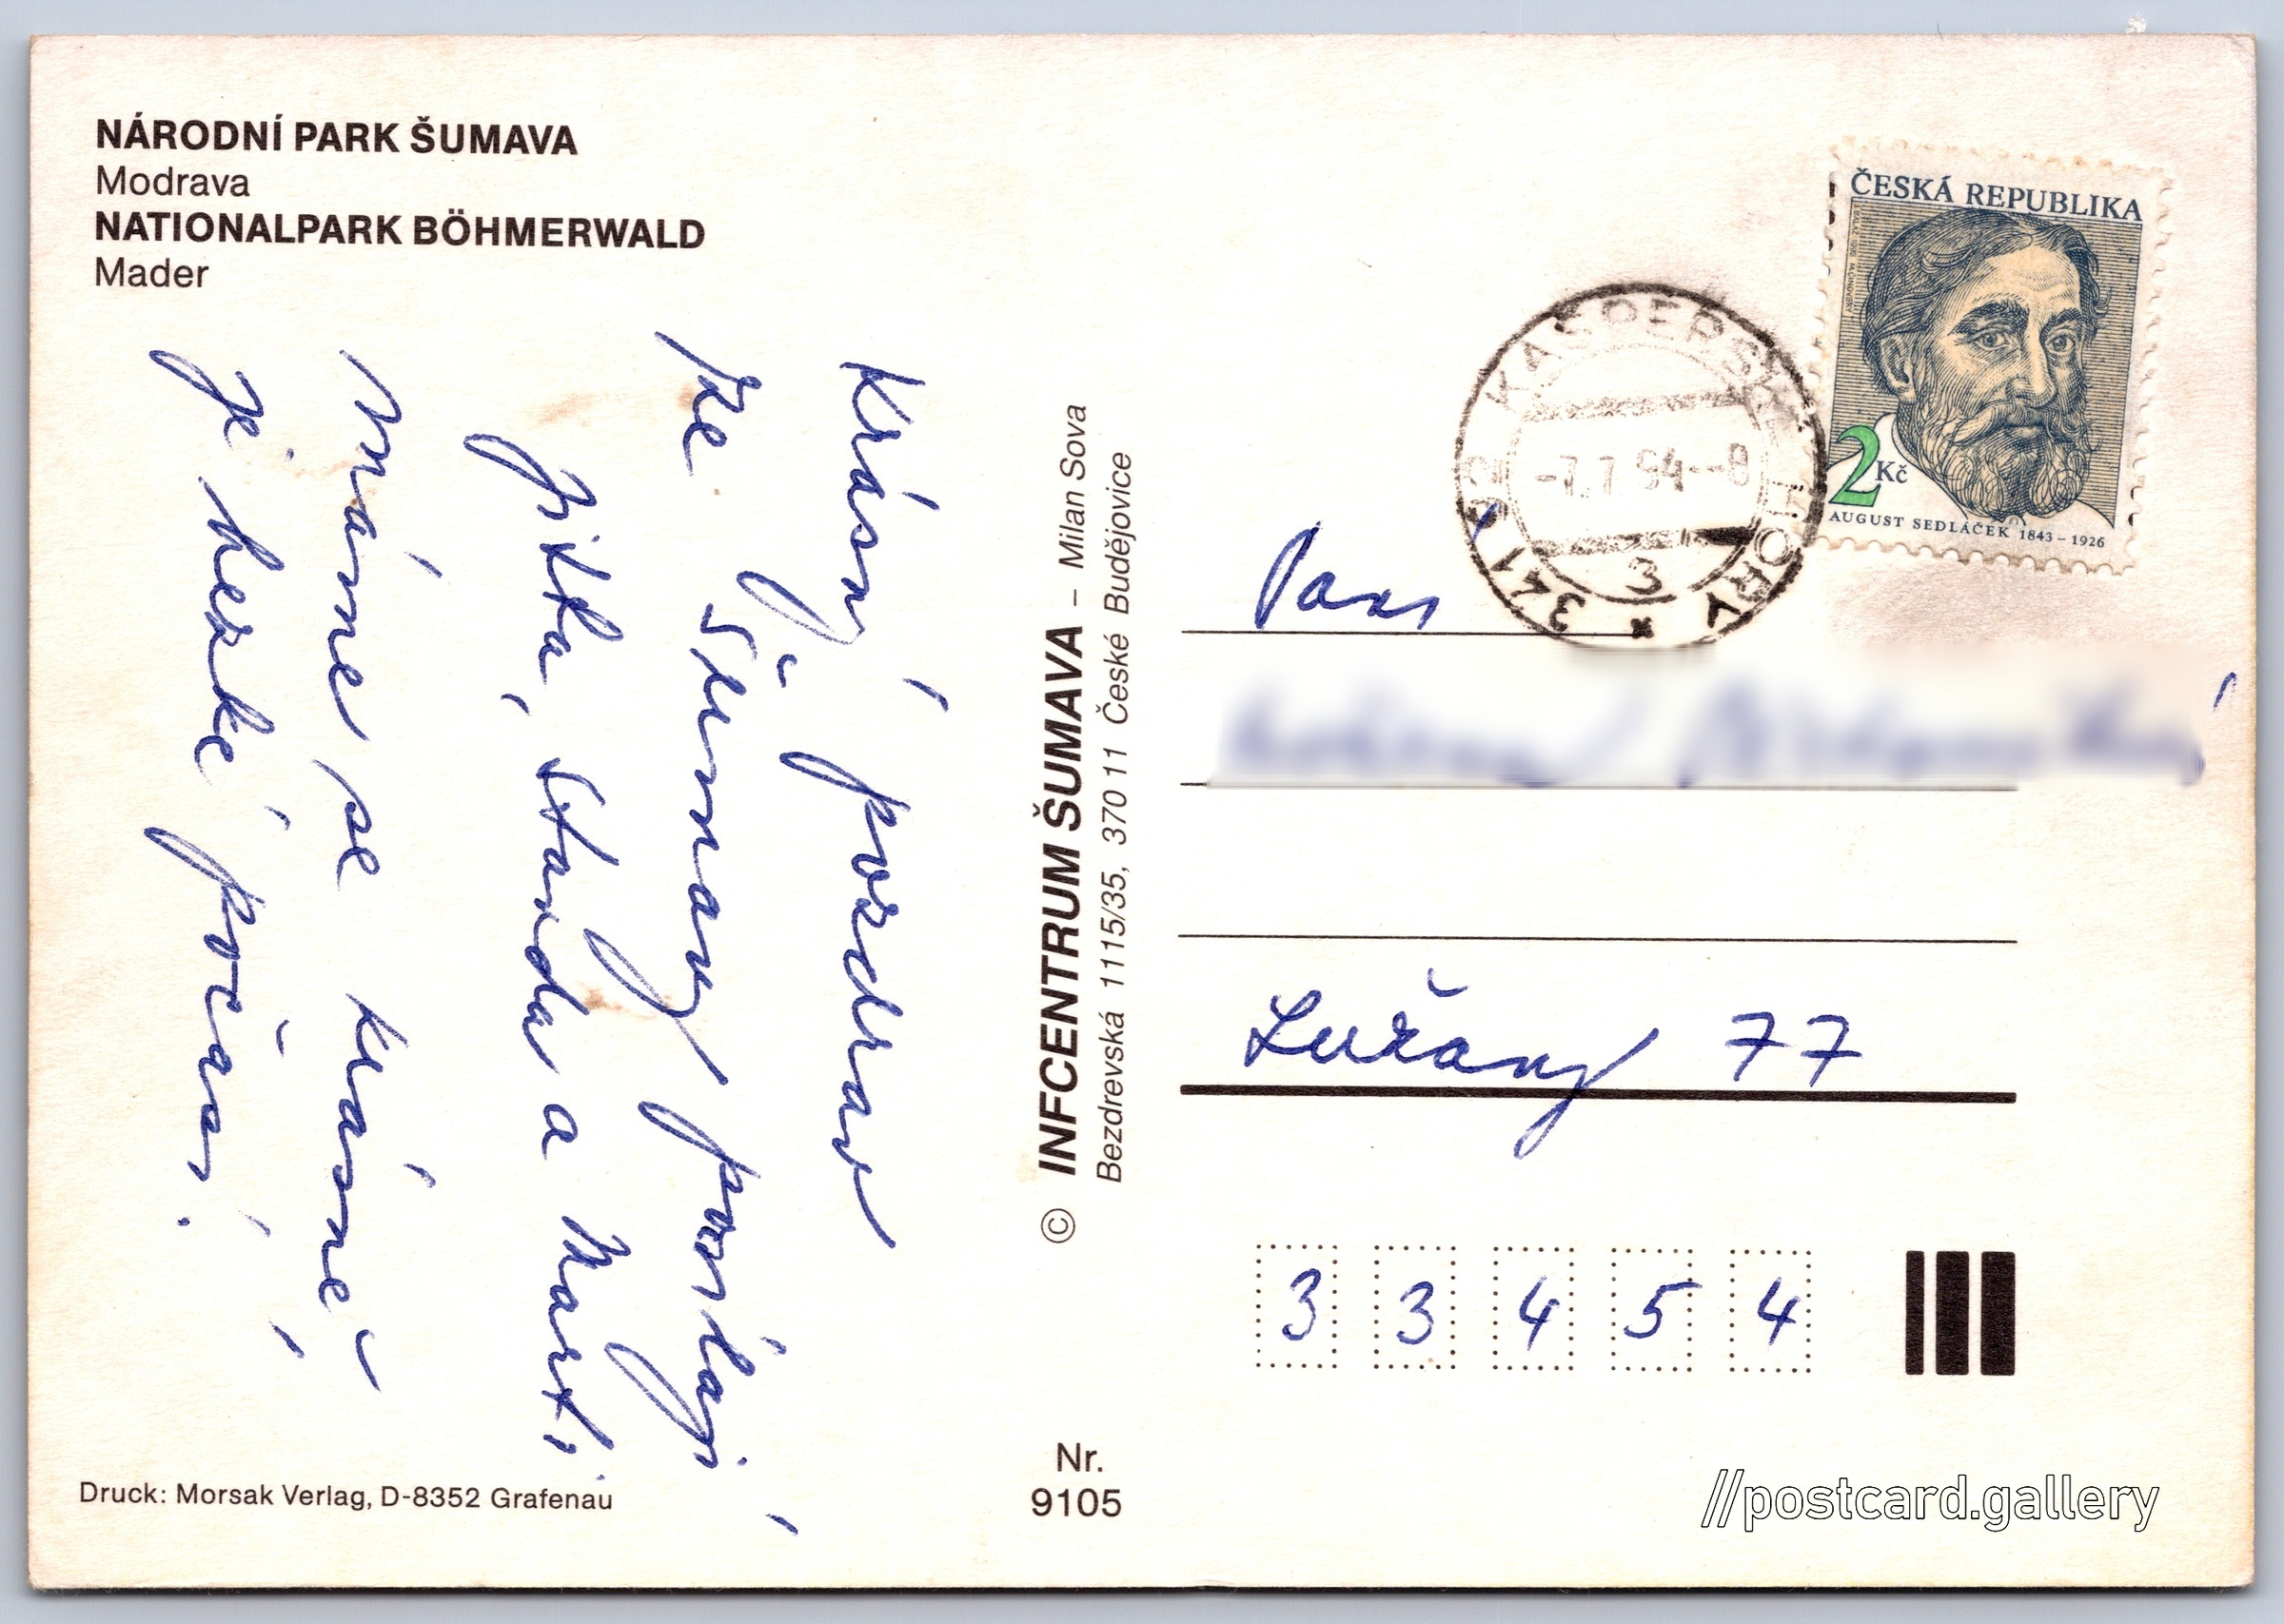 NÁRODNÍ PARK ŠUMAVA
Modrava
NATIONALPARK BÖHMERWALD
Mader
Krásný pozdrav
ze Šumavy posílají
Jitka, Standa a Marti
Máme se krásně
je hezké počasí.
Druck: Morsak Verlag, D-8352 Grafenau
© INFCENTRUM ŠUMAVA – Milan Sova
Bezdrevská 1115/35, 370 11 České Budějovice
Nr.
9105
ČESKÁ REPUBLIKA
2 Kč
AUGUST SEDLÁČEK 1843 – 1926
KAŠPERSKÉ HORY
-7.7.94--8
3
Lužany 77
3 3 4 5 4
//postcard.gallery